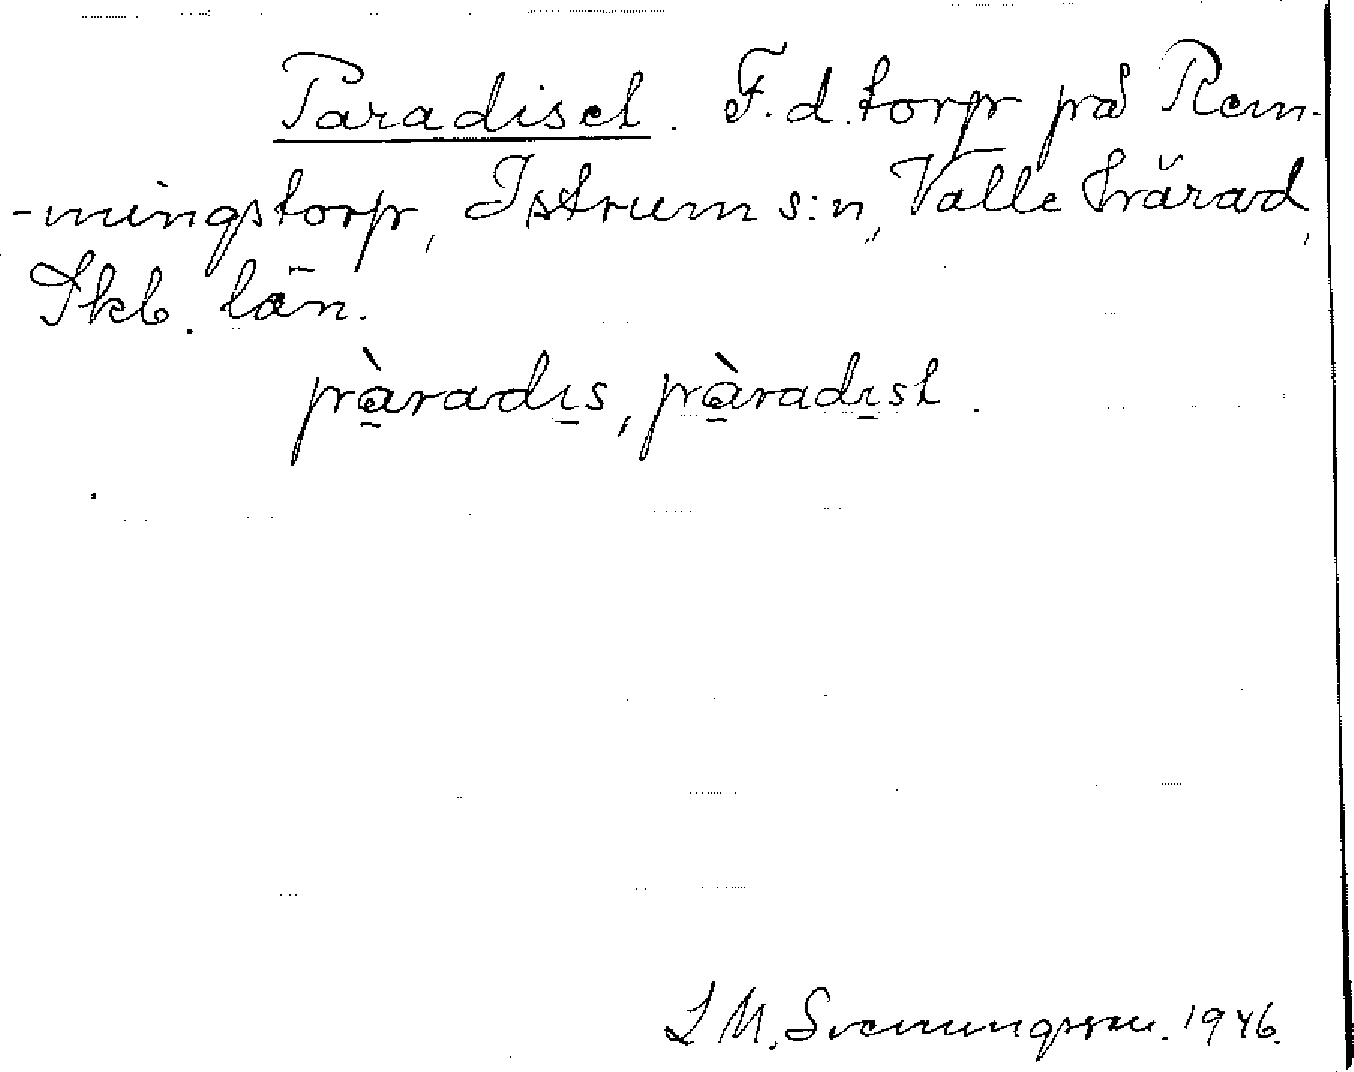 Paradiset. F.d. torp på Rem-
-mingstorp, Istrum s:n, Valle härad,
Skb. län.
pàradıs, pàradıst.
L M. Svenungsson. 1946.